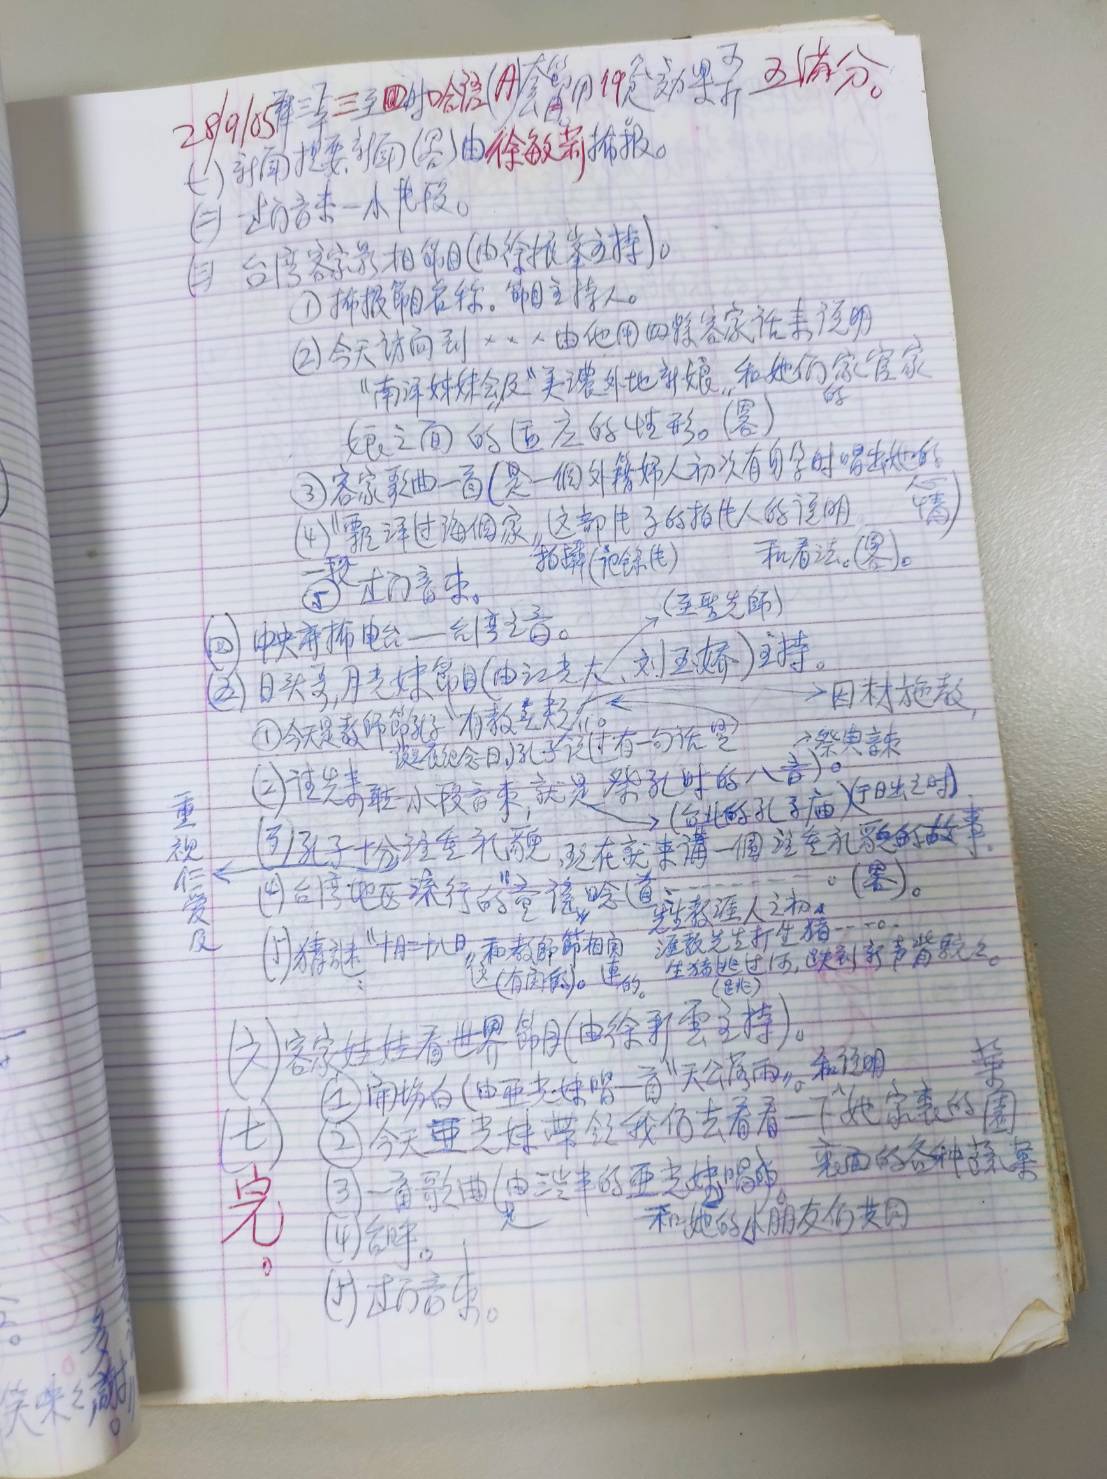 28/9/05 三至四时 (A) 五满分。
(一) 新闻提要,新闻(客)由徐敏莉播报。
(二) 过门音乐一小片段。
(三) 台湾客家影相節目(由徐振峯主持)。
① 播报節目名称。節目主持人。
(2) 今天访问到×××由他用四縣客家话来说明
"南洋姊妹会及"美濃外地新娘"和她们的家官家
娘之间的适应的情形。(客)
③ 客家歌曲一首(是一個外籍婦人初次有身孕时唱出她的心情)
(4)"飄洋过海個家"这部片子的拍片人的说明
拍攝(记録片) 和看法。(客)。
⑤ 一段过门音乐。
(四) 中央廣播电台——台湾之音。
(至聖先師)
(五) 日头哥,月光妹節目(由江光大、刘玉娇)主持。
因材施教,
① 今天是教師節孔子"有教无类"
誕辰纪念日,孔子说过有一句话是
祭典音乐
(2) 首先来聽一小段音乐,就是祭孔时的八音)。
(台北的孔子庙)(于日出之时)
(3) 孔子十分注重礼貌,现在就来講一個注重礼貌的故事,
重視仁爱及
(客)。
(4) 台湾地区流行的"童謠"唸(首
先生教涯人之初,
涯教先生打生猪……。
生猪跳过河,跌到
(跳)
(5) 猜謎"十月二十八日"和教師節相関
(有関係)。連的。
(六) 客家娃娃看世界節目(由徐新雲主持)。
① 開场白(由亜光妹唱一首"天公落雨"。和说明
② 今天亜光妹带领我们去看看一下她家裏的菓園
裏面的各种蔬菓
③ 一首歌曲(由三岁半的亜光妹唱出
和她的小朋友们共同
(4) 台呼。
(5) 过门音乐。
(七)
完。
多謝